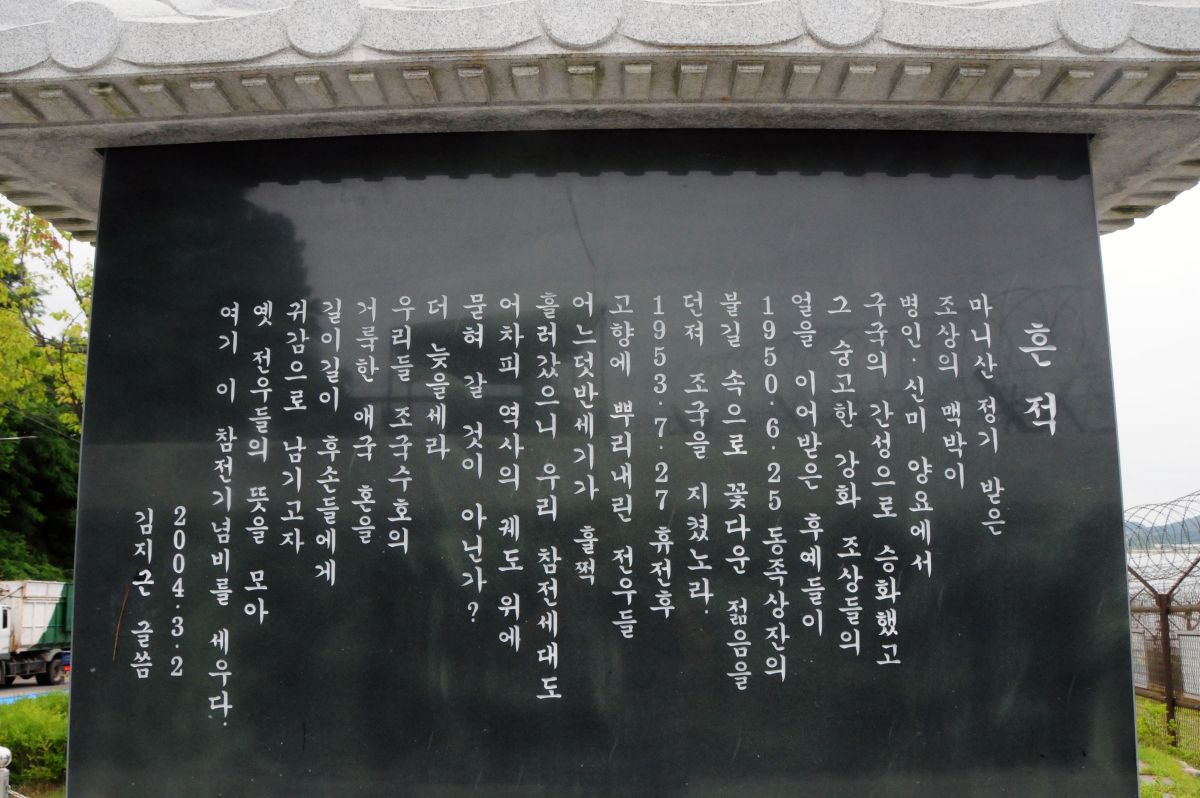 흔적
마니산 정기 받은
조상의 맥박이
병인·신미 양요에서
구국의 간성으로 승화했고
그 숭고한 강화 조상들의
얼을 이어받은 후예들이
1950·6·25 동족상잔의
불길 속으로 꽃다운 젊음을
던져 조국을 지켰노라.
1953·7·27 휴전후
고향에 뿌리내린 전우들
어느덧반세기가 훌쩍
흘러갔으니 우리 참전세대도
어차피 역사의 궤도 위에
묻혀 갈 것이 아닌가?
더 늦을세라
우리들 조국수호의
거룩한 애국 혼을
길이길이 후손들에게
귀감으로 남기고자
옛 전우들의 뜻을 모아
여기 이 참전기념비를 세우다.
2004·3·2
김지근 글씀